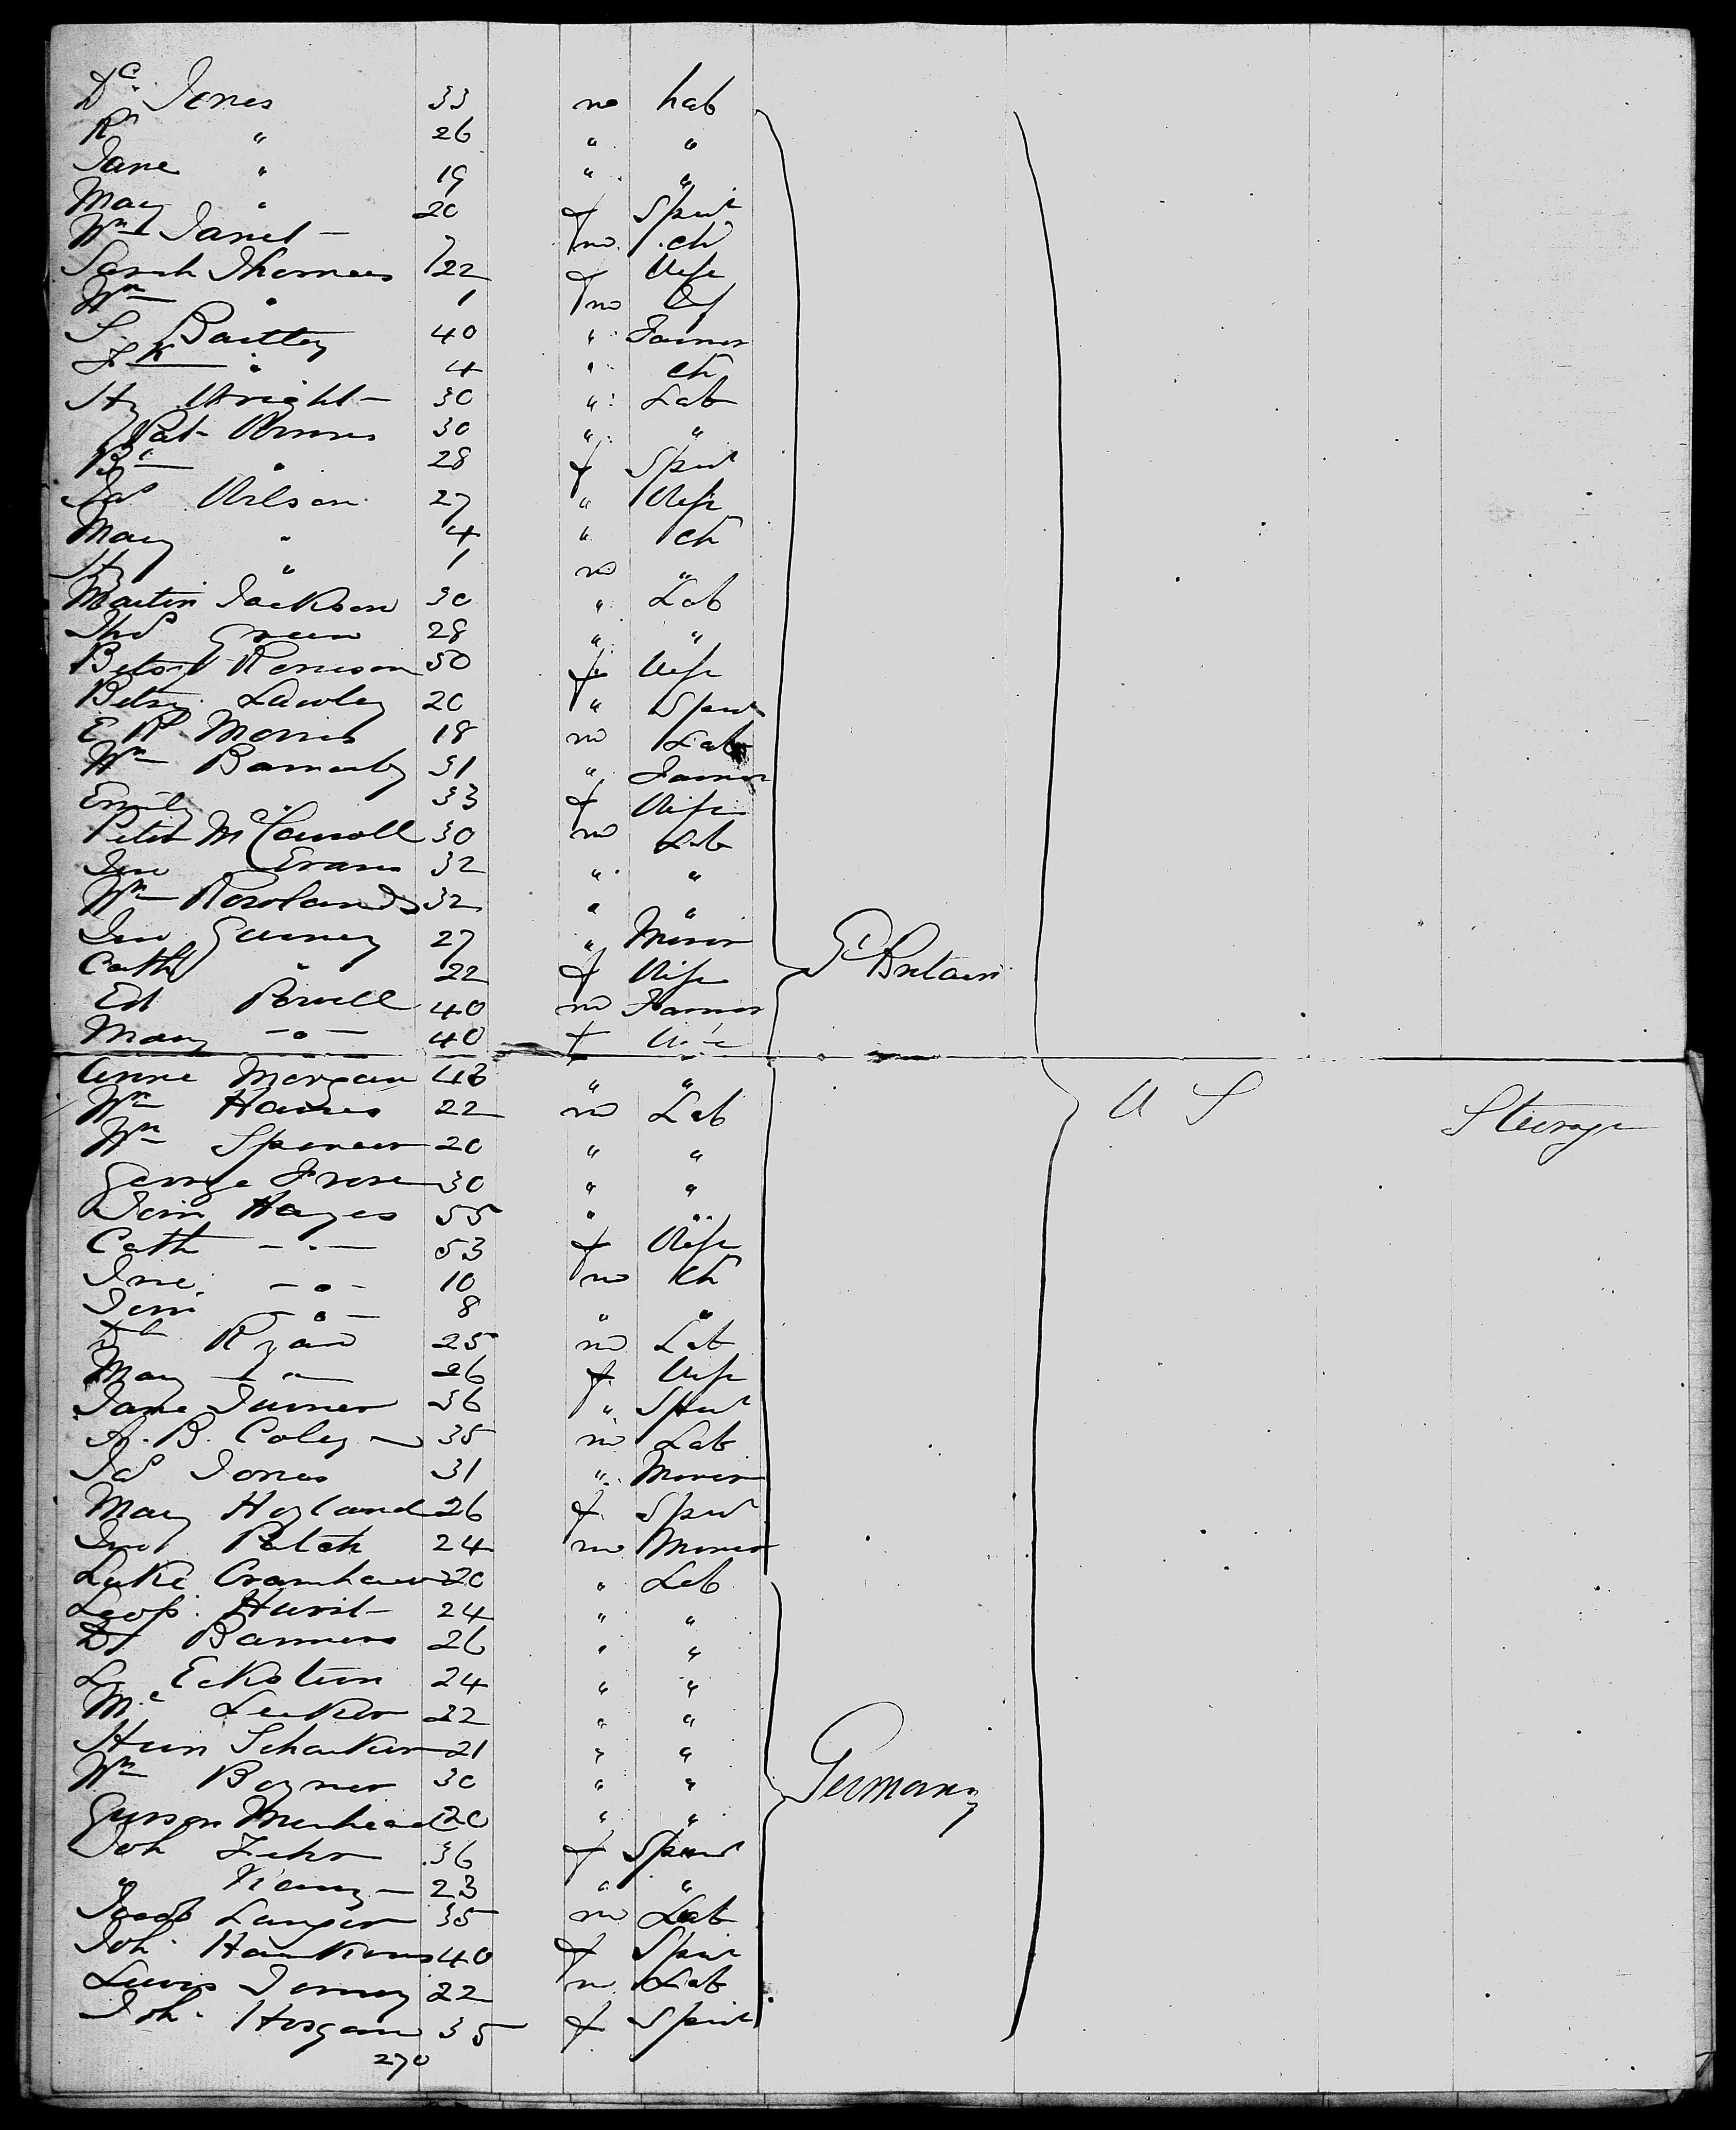 Dd. Jones 33 m Lab
Rd " 26 " "
Jane " 19 " "
Mary " 20 f Spinr
Wm Janet 7 m ch
Sarah Thomas 22 f Wife
Wm " 1 m Inf
S. Bartley 40 " Farmer
" 4 " ch
Hy Wright 30 " Lab
Pat 30 " "
" 28 f Spinr
Jas Wilson 27 " Wife
Mary " 4 " ch
Hy " 1 m "
Martin Jackson 30 " Lab
Thos Green 28 " "
Betsy Renison 50 f Wife
Betsy Lawley 20 " Spinr
E Rd Morris 18 m Lab
Wm Barnaby 31 " Farmer
Emily " 33 f Wife
Peter McCarroll 30 m Lab
Jno Evans 32 " "
Wm Rowlands 32 " "
Jno Gurney 27 " Miner
Cath " 22 f Wife
Gt Britain
Ed Powell 40 m Farmer
Mary " 40 f Wife
Anne Morgan 43 " "
Wm Haines 22 m Lab
U S Steerage
Wm Spencer 20 " "
George Frose 30 " "
Jem Hayes 55 " "
Cath " 53 f Wife
Jne " 10 m ch
Jem " 8 " "
Ryan 25 m Lab
Mary " 26 f Wife
Jane Turner 36 " Spinr
A. B. Coley 35 m Lab
Jas Jones 31 " Miner
Mary Hyland 26 f Spinr
Jno Patch 24 m Miner
Luke 20 " Lab
Leop. Hurst 24 " "
Banners 26 " "
L Eckstein 24 " "
Mc Lecker 22 " "
Hein Schanker 21 " "
Wm Boyner 30 " "
Germany
Gerson 20 " "
Joh Fehr 36 f Spinr
" 23 " "
Jacob Langer 35 m Lab
Joh. Hawkins 40 f Spinr
Lewis Jerney 22 m Lab
Joh. Horgan 35 f Spinr
270